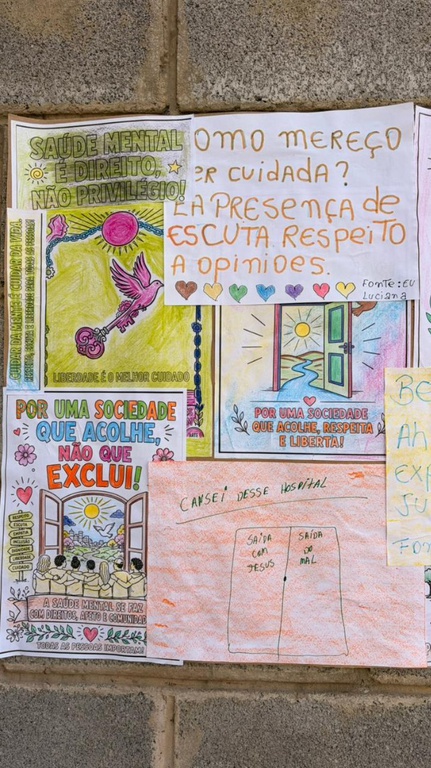 SAÚDE MENTAL
É DIREITO,
NÃO PRIVILÉGIO!
CUIDAR DA MENTE É CUIDAR DA VIDA!
LIBERDADE É O MELHOR CUIDADO
OMO MEREÇO
ER CUIDADA?
LA PRESENÇA DE
ESCUTA RESPEITO
A OPINIOES.
FONTE: EU
LUCIANA
POR UMA SOCIEDADE
QUE ACOLHE, RESPEITA
E LIBERTA!
POR UMA SOCIEDADE
QUE ACOLHE,
NÃO QUE
EXCLUI!
A SAÚDE MENTAL SE FAZ
COM DIREITOS, AFETO E COMUNIDADE
TODAS AS PESSOAS IMPORTAM!
CANSEI DESSE HOSPITAL
SAÍDA
COM
JESUS
SAÍDA
DO
MAL
BE
Ah
EXP
JU
FON